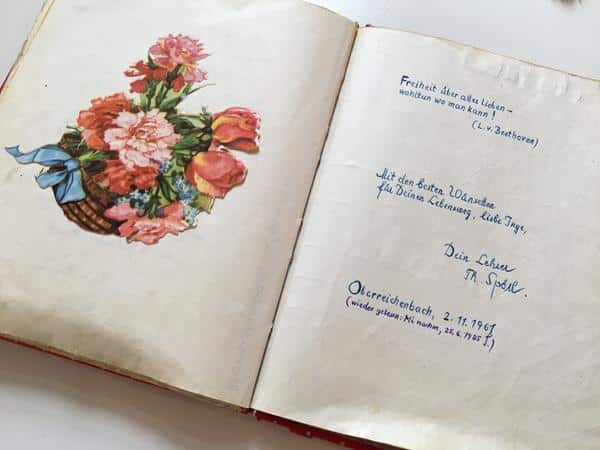 Freiheit über alles lieben –
wohltun wo man kann!
(L. v. Beethoven)
Mit den besten Wünschen
für Deinen Lebensweg, liebe Inge,
Dein Lehrer
Th.
Oberreichenbach, 2.11.1961
(wieder gelesen: